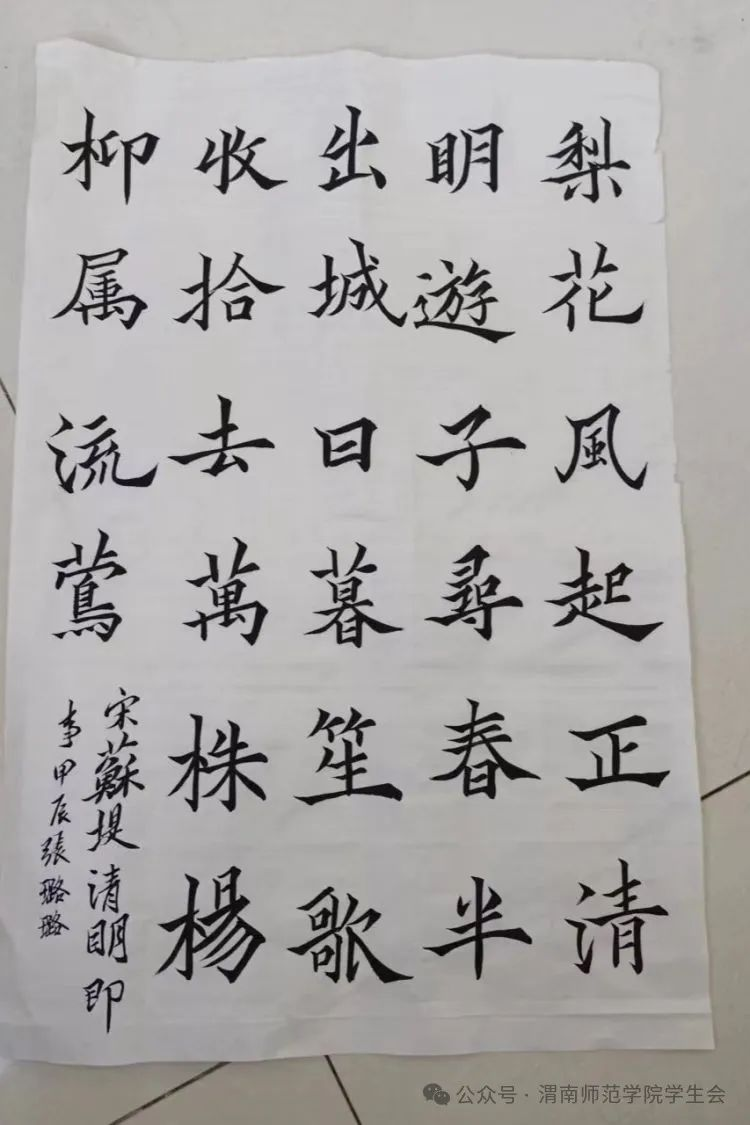 梨花風起正清
明遊子尋春半
出城日暮笙歌
收拾去萬株楊
柳属流鶯
宋蘇堤清明即
事甲辰張璐璐
公众号·渭南师范学院学生会